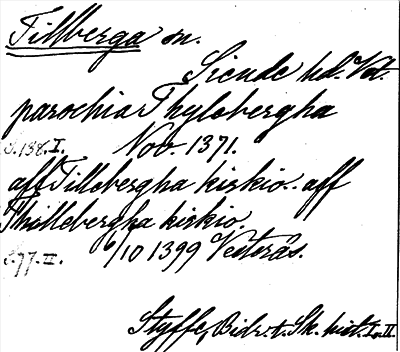 Tillberga sn.
Siende hd. Vstm.
parochia Thylebergha
s. 138. I. Nov. 1371.
aff Tillebergha kirkio. aff
Thillebergha kirkio.
s. 77. II. 6/10 1399 Vesterås.
Styffe, Bidr. t. Sk. hist. I. II.